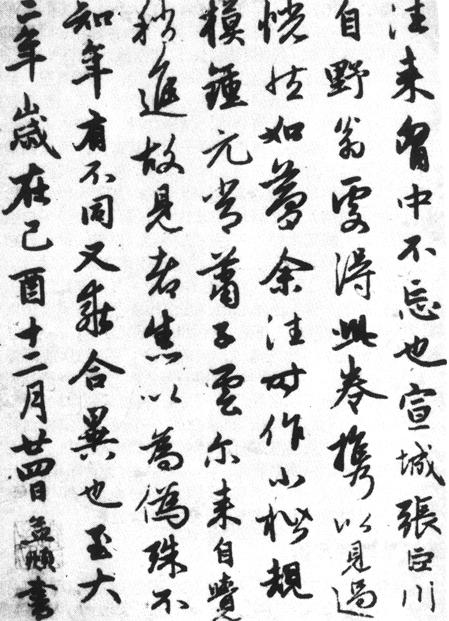 往来胷中不忘也宣城張川
自野翁處得此卷攜以見過
恍然如夢余往時作小楷規
模鍾元常蕭子雲尔来自覺
稍進故見者以為偽殊不
知年有不同又乖合異也至大
二年歲在己酉十二月廿四日孟頫書